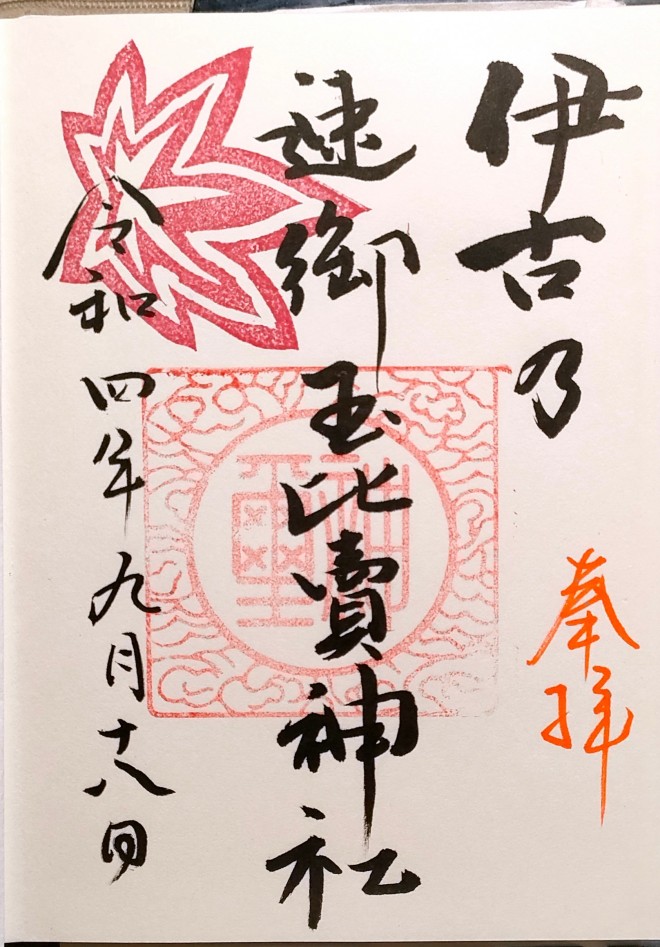 伊古乃
奉拝
速御玉比賣神社
神璽
令和四年九月十八日